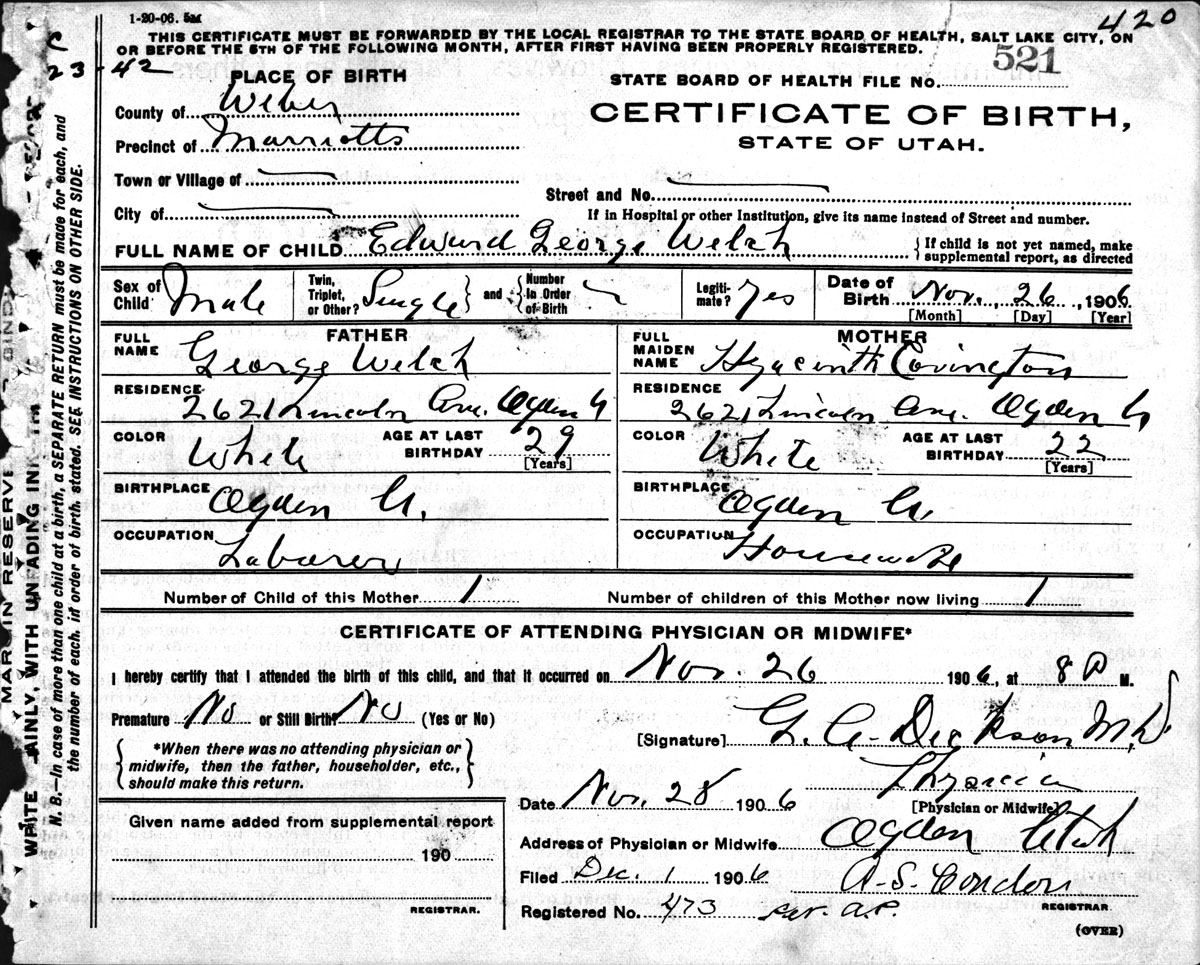 1-20-06. 5M
420
THIS CERTIFICATE MUST BE FORWARDED BY THE LOCAL REGISTRAR TO THE STATE BOARD OF HEALTH, SALT LAKE CITY, ON
OR BEFORE THE 5TH OF THE FOLLOWING MONTH, AFTER FIRST HAVING BEEN PROPERLY REGISTERED.
C
23-42
521
PLACE OF BIRTH
STATE BOARD OF HEALTH FILE NO.
County of Weber
CERTIFICATE OF BIRTH,
Precinct of Marriotts
STATE OF UTAH.
Town or Village of
Street and No.
City of
If in Hospital or other Institution, give its name instead of Street and number.
FULL NAME OF CHILD Edward George Welch
{If child is not yet named, make
supplemental report, as directed
Sex of Child Male
Twin, Triplet, or Other? Single} and {Number In Order of Birth
Legiti-mate? Yes
Date of Birth Nov. 26, 1906
[Month] [Day] [Year]
FATHER
FULL NAME George Welch
RESIDENCE 2621 Lincoln Ave. Ogden U
COLOR White
AGE AT LAST BIRTHDAY 29
[Years]
BIRTHPLACE Ogden U.
OCCUPATION Laborer
MOTHER
FULL MAIDEN NAME Hyacinth Covington
RESIDENCE 2621 Lincoln Ave. Ogden U
COLOR White
AGE AT LAST BIRTHDAY 22
[Years]
BIRTHPLACE Ogden U
OCCUPATION Housewife
Number of Child of this Mother 1
Number of children of this Mother now living 1
CERTIFICATE OF ATTENDING PHYSICIAN OR MIDWIFE*
I hereby certify that I attended the birth of this child, and that it occurred on Nov. 26 1906, at 8 P M.
Premature No or Still Birth? No (Yes or No)
[Signature] G. A. Dickson M.D.
{*When there was no attending physician or
midwife, then the father, householder, etc.,
should make this return.}
Physician
[Physician or Midwife]
Date Nov. 28 1906
Address of Physician or Midwife Ogden Utah
Filed Dec. 1 1906
A. S. Condon
REGISTRAR.
Registered No. 473
per. A.P.
(OVER)
Given name added from supplemental report
190
REGISTRAR.
N. B.—In case of more than one child at a birth, a SEPARATE RETURN must be made for each, and
the number of each, in order of birth, stated. SEE INSTRUCTIONS ON OTHER SIDE.
MARGIN RESERVE
WRITE AINLY, WITH UNFADING IN